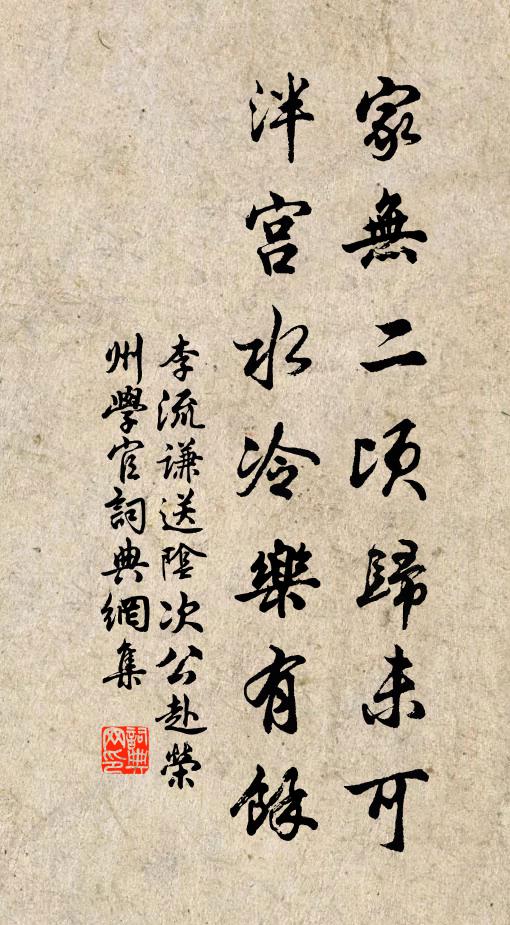 家無二頃歸未可
泮宮水冷樂有餘
李流謙送陰次公赴榮
州學官詞典網集
詞典
网印